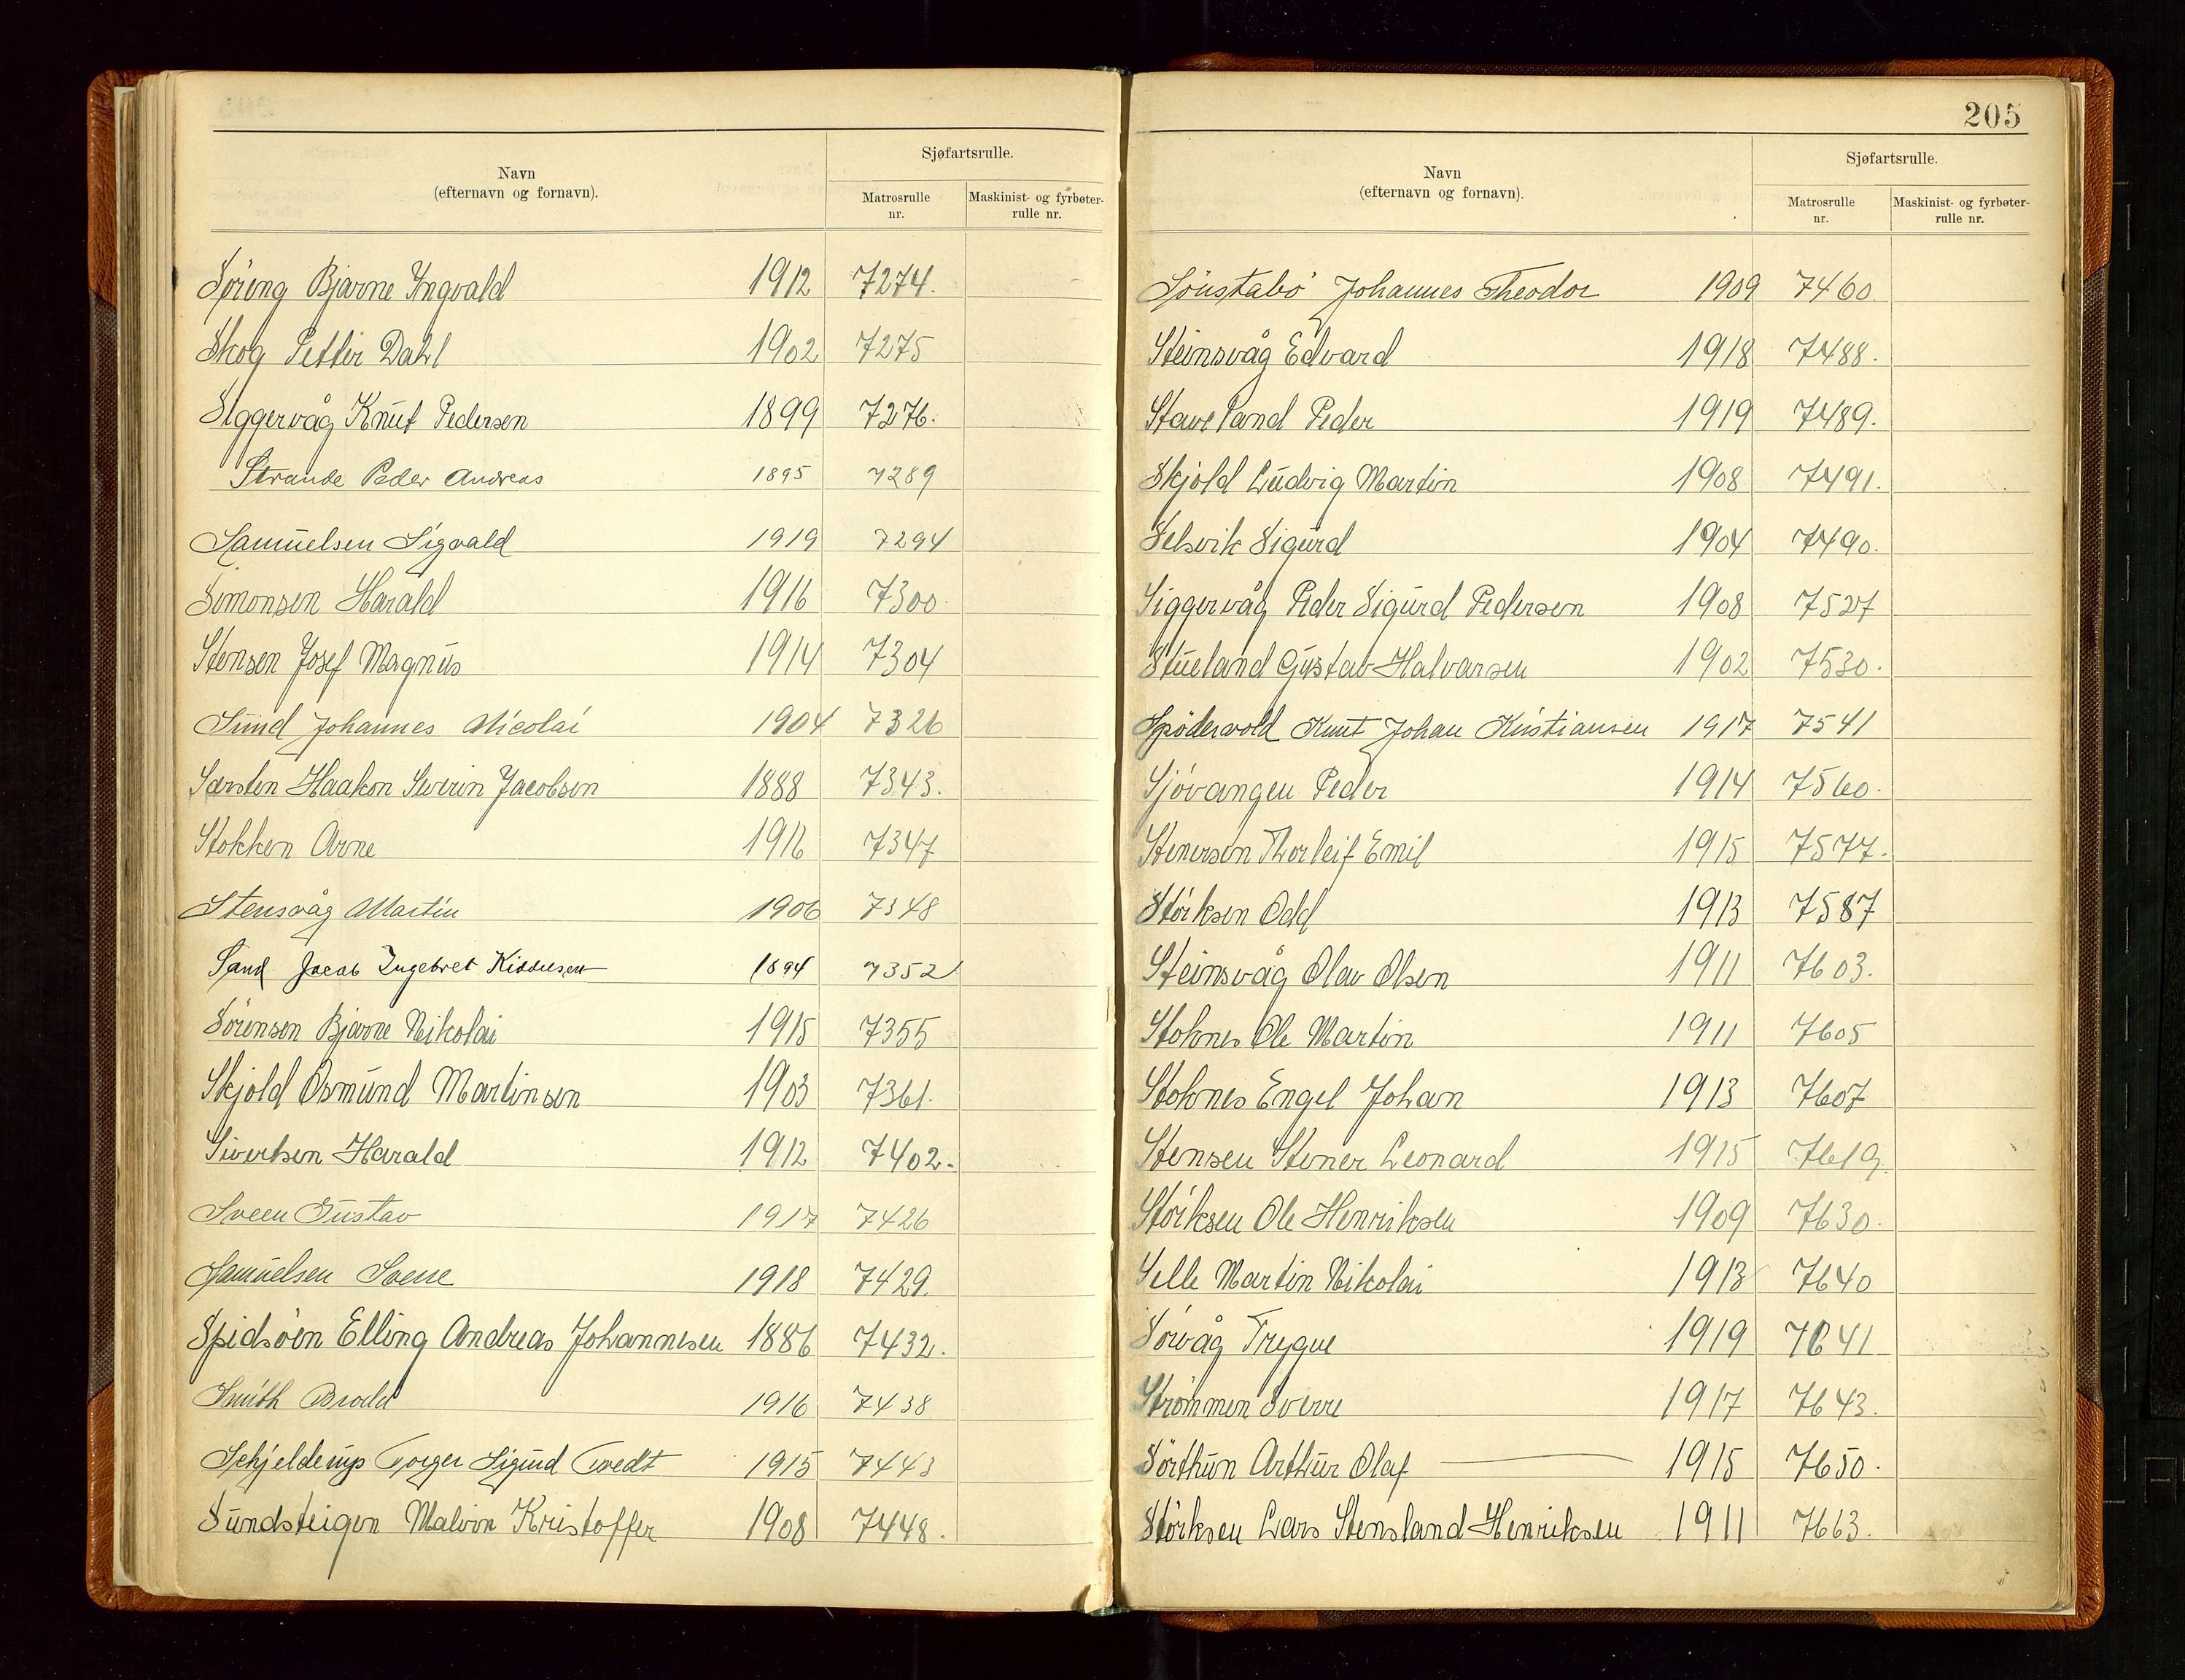 Navn
(efternavn og fornavn).
Sjøfartsrulle.
Matrosrulle nr.
Maskinist- og fyrbøter-rulle nr.
Søreng Bjarne Ingvald 1912 7274.
Skog Petter Dahl 1902 7275
Siggervåg Knut Pedersen 1899 7276.
Strande Peder Andreas 1895 7289
Samuelsen Sigvald 1919 7294
Simonsen Harald 1916 7300.
Stensen Josef Magnus 1914 7304
Sund Johannes Nicolai 1904 7326
Særsten Haakon Severin Jacobsen 1888 7343.
Stokken Arne 1916 7347
Stensvåg Martin 1906 7348
Sand Jacob Ingebret 1894 7352
Sørensen Bjarne Nikolai 1915 7355
Skjold Osmund Martinsen 1903 7361.
Sivertsen Harald 1912 7402.
Sveen Gustav 1917 7426
Samuelsen 1918 7429.
Spidsøen Elling Andreas Johannesen 1886 7432.
Smith 1916 7438
Schjelderup Torger Sigurd Tvedt 1915 7443
Sundsteigen Malvin Kristoffer 1908 7448.
205
Navn
(efternavn og fornavn).
Sjøfartsrulle.
Matrosrulle nr.
Maskinist- og fyrbøter-rulle nr.
Sönstabö Johannes Theodor 1909 7460.
Steinsvåg Edvard 1918 7488.
Staveland Peder 1919 7489.
Skjold Ludvig Martin 1908 7491.
Selsvik Sigurd 1904 7490.
Siggervåg Peder Sigurd Pedersen 1908 7527
Stueland Gustav Halvarsen 1902 7530.
Spödervold Knut Johan Kristiansen 1917 7541
Sjövangen Peder 1914 7560.
Stenersen Thorleif Emil 1915 7577.
Störksen Odd 1913 7587
Steinsvåg Olav Olsen 1911 7603.
Stoknes Ole Martin 1911 7605
Stoknes Engel Johan 1913 7607
Stensen Stener Leonard 1915 7619.
Störksen Ole Henriksen 1909 7630.
Selle Martin Nikolai 1913 7640
Sørvåg Trygve 1919 7641
Strømmen Sverre 1917 7643.
Sörthun Arthur Olaf 1915 7650.
Störksen Lars Stensland Henriksen 1911 7663.